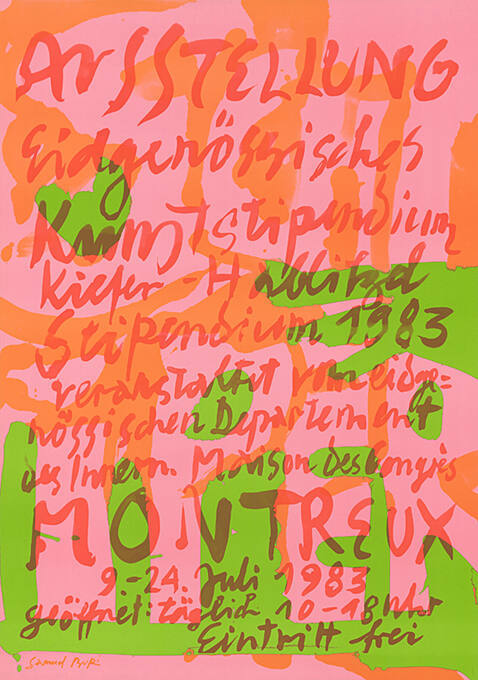 AUSSTELLUNG
Eidgenössisches
Kunststipendium
Kiefer-Hablitzel
Stipendium 1983
veranstaltet vom eidge-
nössischen Departement
des Innern. Maison des Congrès
MONTREUX
9-24. Juli 1983
geöffnet: täglich 10-18 Uhr
Eintritt frei
Samuel Buri